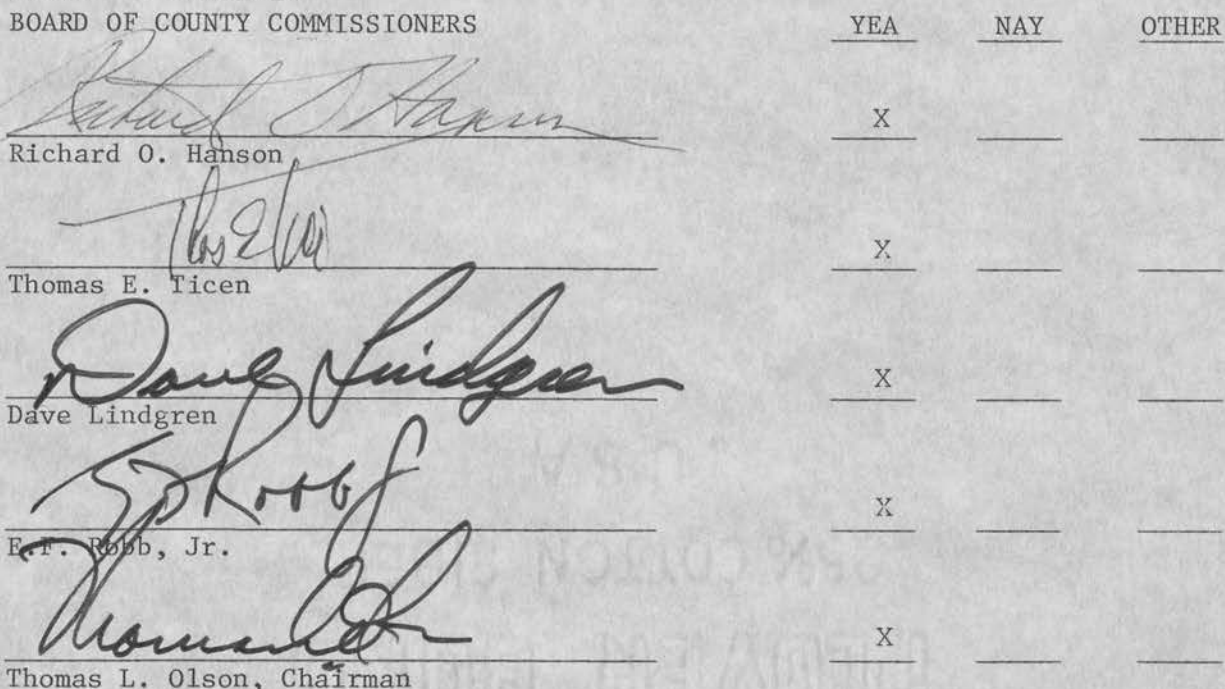 BOARD OF COUNTY COMMISSIONERS YEA NAY OTHER
X
Richard O. Hanson
X
Thomas E. Ticen
Dave Lindgren X
Dave Lindgren
E.F. Robb Jr X
E.F. Robb, Jr.
X
Thomas L. Olson, Chairman